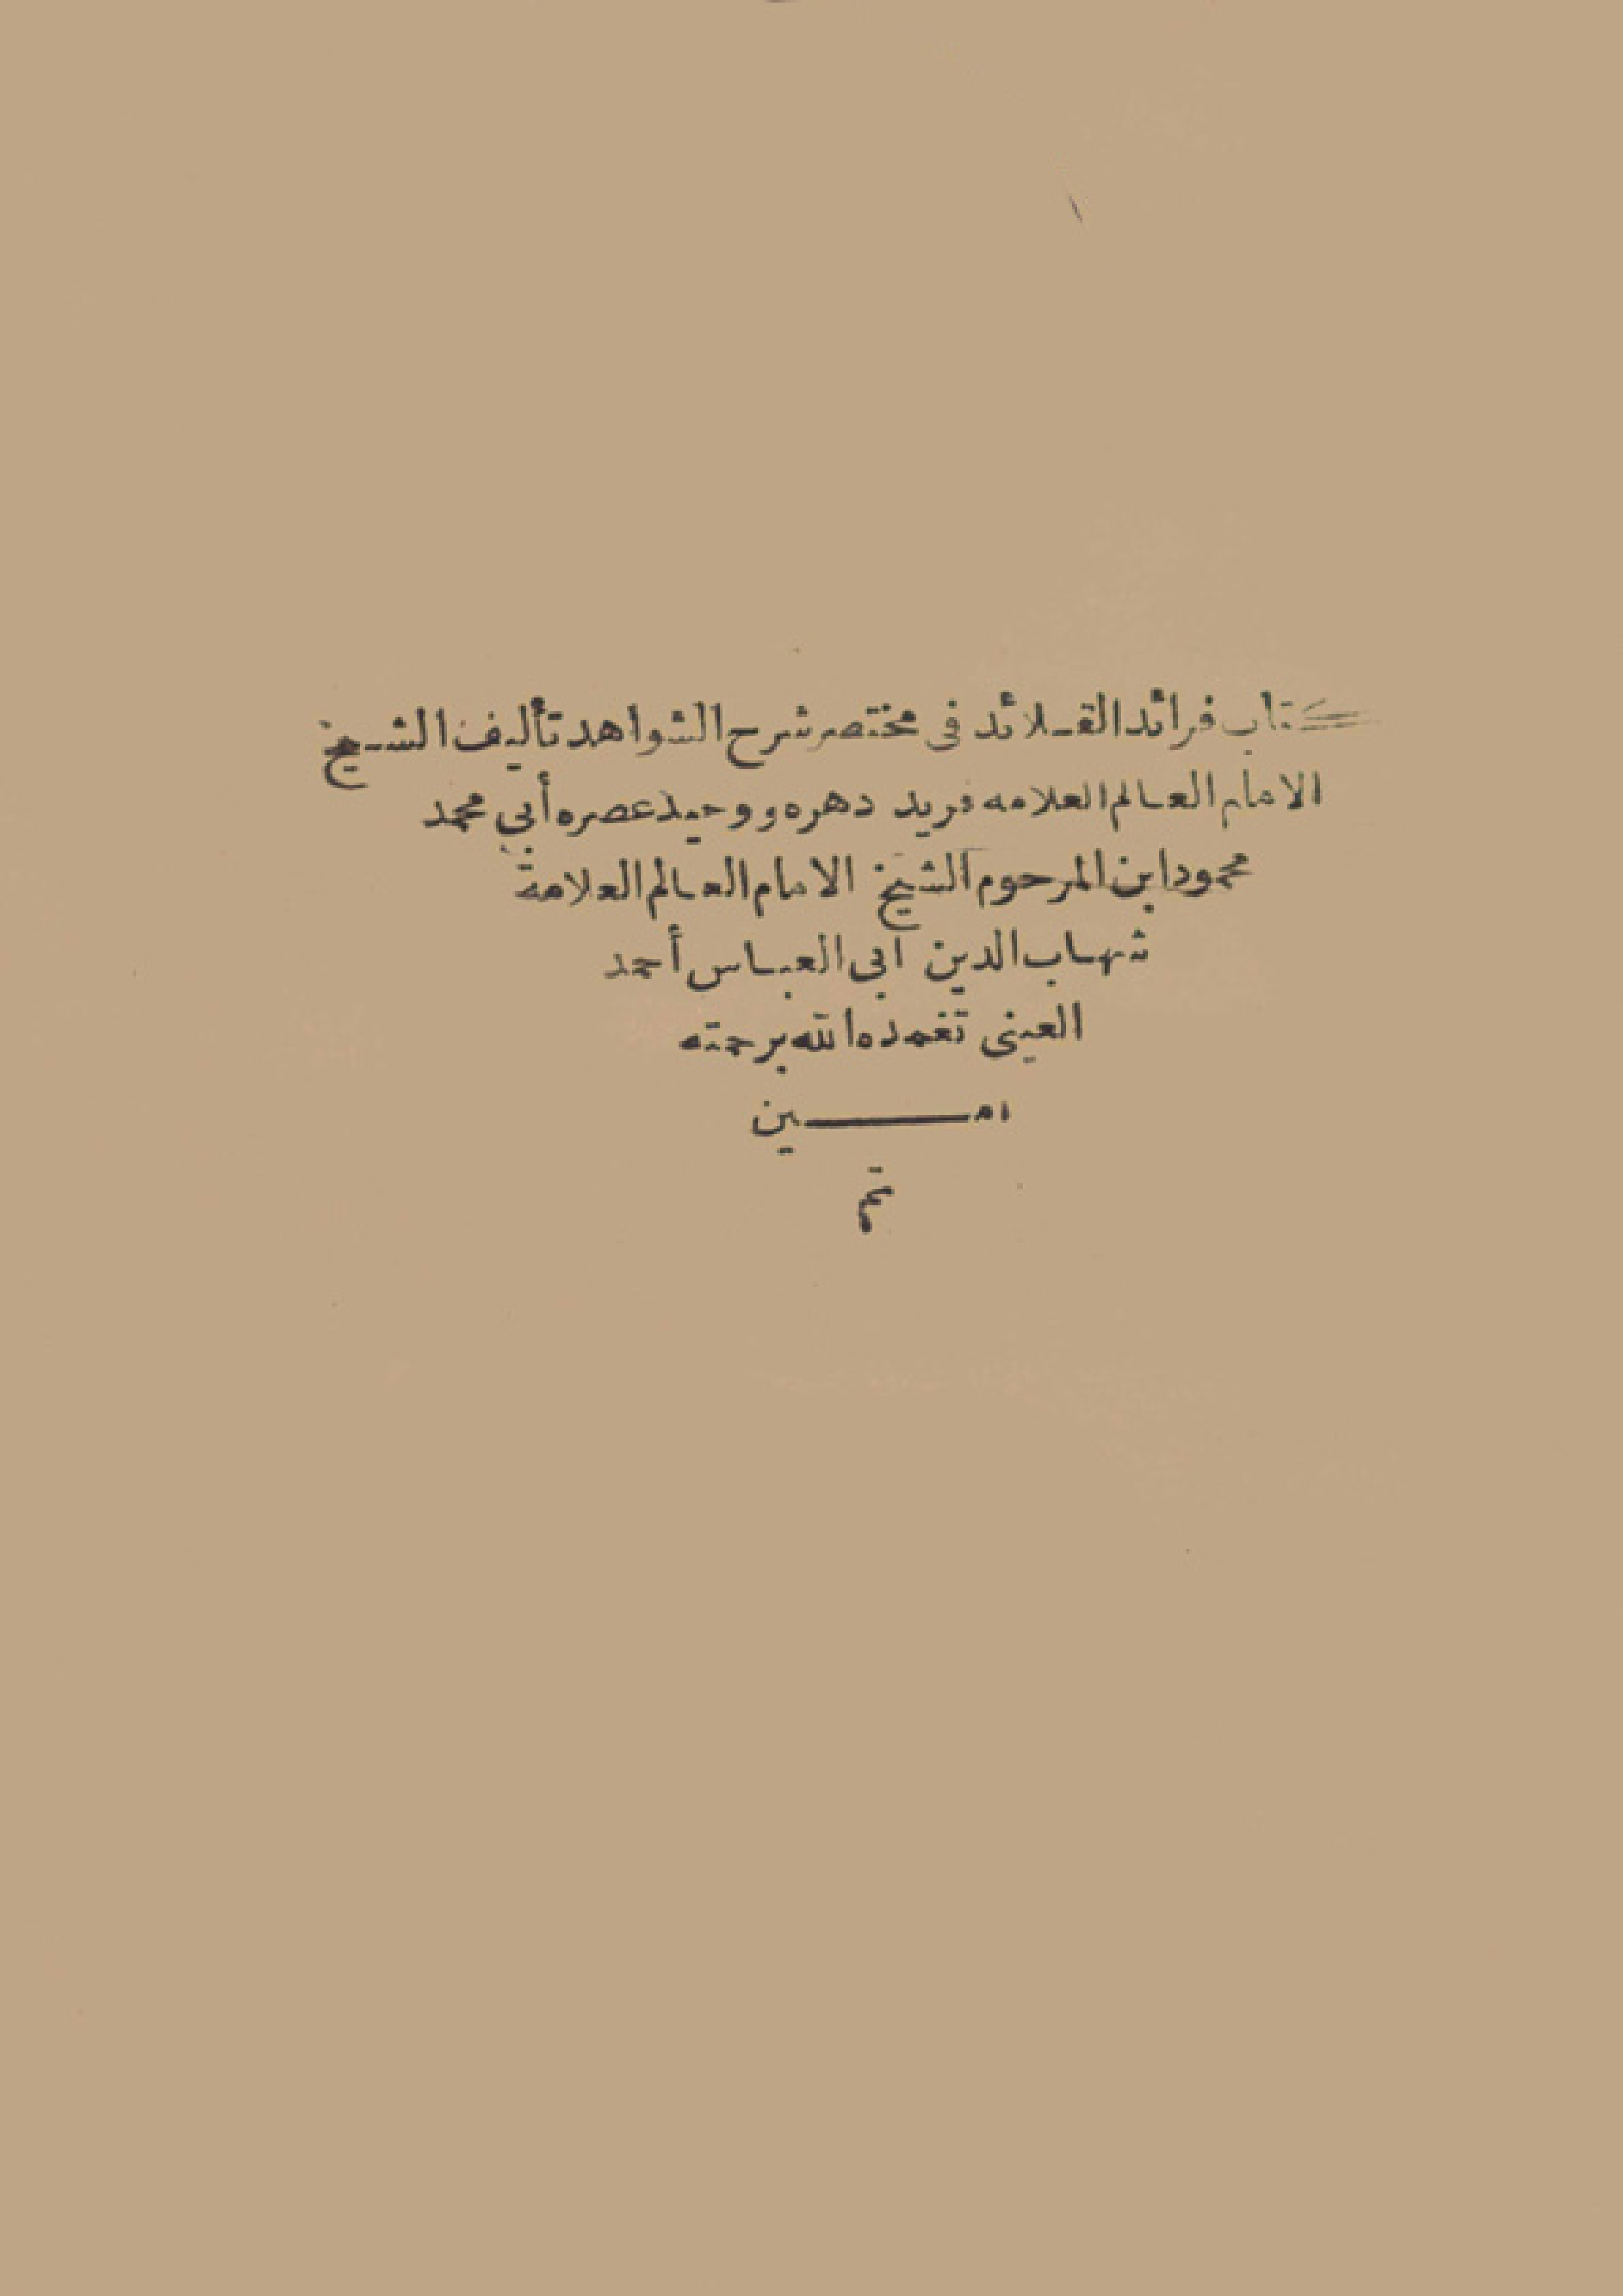 كتاب فرائد القلائد فى مختصر شرح الشواهد تأليف الشيخ
الامام العالم العلامه فريد دهره ووحيد عصره أبي محمد
محمود ابن المرحوم الشيخ الامام العالم العلامة
شهاب الدين أبى العباس أحمد
العينى تغمده الله برحمته
امـــــين
تم